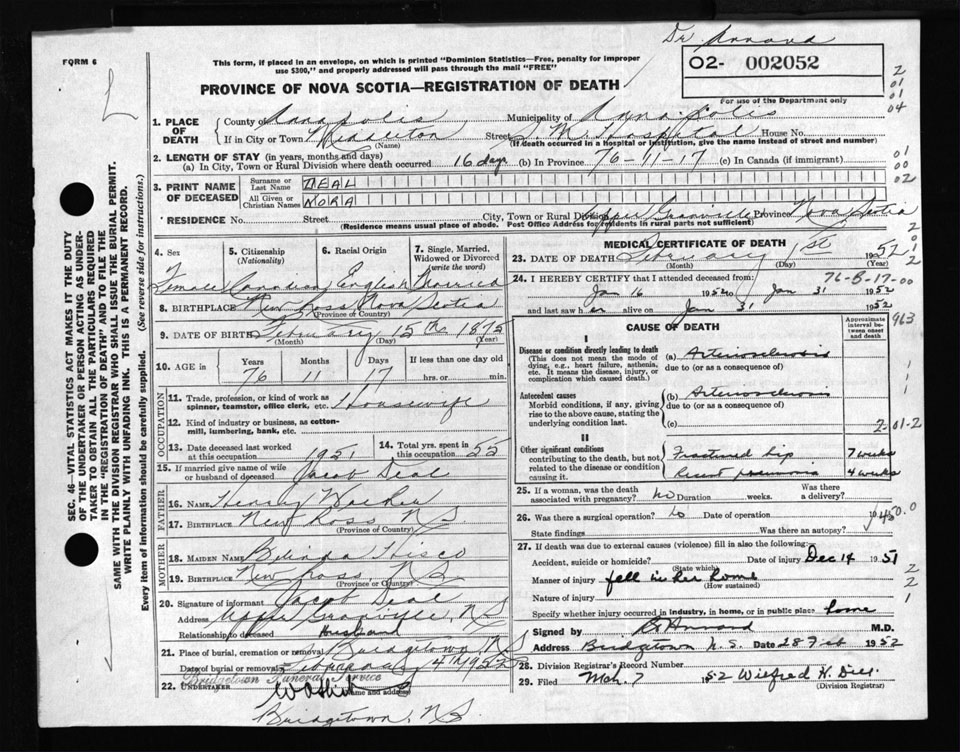 Dr Annand
FORM 6
This form, if placed in an envelope, on which is printed "Dominion Statistics—Free, penalty for improper
use $300," and properly addressed will pass through the mail "FREE"
02- 002052
For use of the Department only
PROVINCE OF NOVA SCOTIA—REGISTRATION OF DEATH
1. PLACE OF DEATH
County of Annapolis Municipality of Annapolis
If in City or Town Middleton Street S M Hospital House No.
(Name) (If death occurred in a hospital or institution, give the name instead of street and number)
2. LENGTH OF STAY (in years, months and days)
(a) In City, Town or Rural Division where death occurred 16 days (b) In Province 76-11-17 (c) In Canada (if immigrant)
3. PRINT NAME OF DECEASED
Surname or Last Name DEAL
All Given or Christian Names NORA
RESIDENCE No. Street City, Town or Rural Division Upper Granville Province Nova Scotia
(Residence means usual place of abode. Post Office Address for residents in rural parts not sufficient)
4. Sex Female
5. Citizenship (Nationality) Canadian
6. Racial Origin English
7. Single, Married, Widowed or Divorced (write the word) Married
8. BIRTHPLACE New Ross Nova Scotia
(Province or Country)
9. DATE OF BIRTH February 15th 1875
(Month) (Day) (Year)
10. AGE in Years Months Days If less than one day old
76 11 17 hrs. or min.
OCCUPATION
11. Trade, profession, or kind of work as spinner, teamster, office clerk, etc. Housewife
12. Kind of industry or business, as cotton-mill, lumbering, bank, etc.
13. Date deceased last worked at this occupation 1951
14. Total yrs. spent in this occupation 55
15. If married give name of wife or husband of deceased Jacob Deal
FATHER
16. NAME Henry
17. BIRTHPLACE New Ross N.S.
(Province or Country)
MOTHER
18. MAIDEN NAME Belinda Hisco
19. BIRTHPLACE New Ross, N.S
(Province or Country)
20. Signature of informant Jacob Deal
Address Upper Granville, N.S
Relationship to deceased Husband
21. Place of burial, cremation or removal Bridgetown, N.S
Date of burial or removal February 4th 1952
Bridgetown Funeral Service
22. UNDERTAKER
(Name and address)
Bridgetown, N.S.
MEDICAL CERTIFICATE OF DEATH
23. DATE OF DEATH February 1st 1952
(Month) (Day) (Year)
24. I HEREBY CERTIFY that I attended deceased from: 76-B-17-00
Jan 16 1952 to Jan 31 1952
and last saw her alive on Jan 31 1952
CAUSE OF DEATH
Approximate interval between onset and death
I
Disease or condition directly leading to death
(This does not mean the mode of dying, e.g., heart failure, asthenia, etc. It means the disease, injury, or complication which caused death.)
(a) Arteriosclerosis
due to (or as a consequence of)
Antecedent causes
Morbid conditions, if any, giving rise to the above cause, stating the underlying condition last.
(b) Arteriosclerosis
due to (or as a consequence of)
(c)
II
Other significant conditions
contributing to the death, but not related to the disease or condition causing it.
Fractured hip 7 weeks
Recent pneumonia 4 weeks
25. If a woman, was the death associated with pregnancy? No Duration weeks. Was there a delivery?
26. Was there a surgical operation? Date of operation 19
State findings Was there an autopsy?
27. If death was due to external causes (violence) fill in also the following:
Accident, suicide or homicide? Date of injury Dec 14 1951
(State which)
Manner of injury fell in her home
(How sustained)
Nature of injury
Specify whether injury occurred in industry, in home, or in public place home
Signed by Annand M.D.
Address Bridgetown N.S. Date 28 Feb 1952
28. Division Registrar's Record Number
29. Filed Mch. 7 1952 Wilfred H.
(Division Registrar)
SEC. 46—VITAL STATISTICS ACT MAKES IT THE DUTY
OF THE UNDERTAKER OR PERSON ACTING AS UNDER-
TAKER TO OBTAIN ALL THE PARTICULARS REQUIRED
IN THE "REGISTRATION OF DEATH" AND TO FILE THE
SAME WITH THE DIVISION REGISTRAR WHO SHALL ISSUE THE BURIAL PERMIT.
WRITE PLAINLY WITH UNFADING INK. THIS IS A PERMANENT RECORD.
Every item of Information should be carefully supplied. (See reverse side for instructions.)